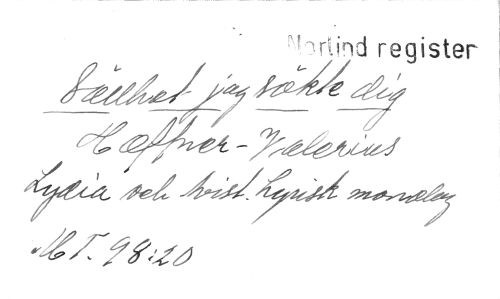 Norlind register
Sällhet jag sökte dig
Hæffner-Valerius
Lydia och hist. Lyrisk monolog
MT. 98:20